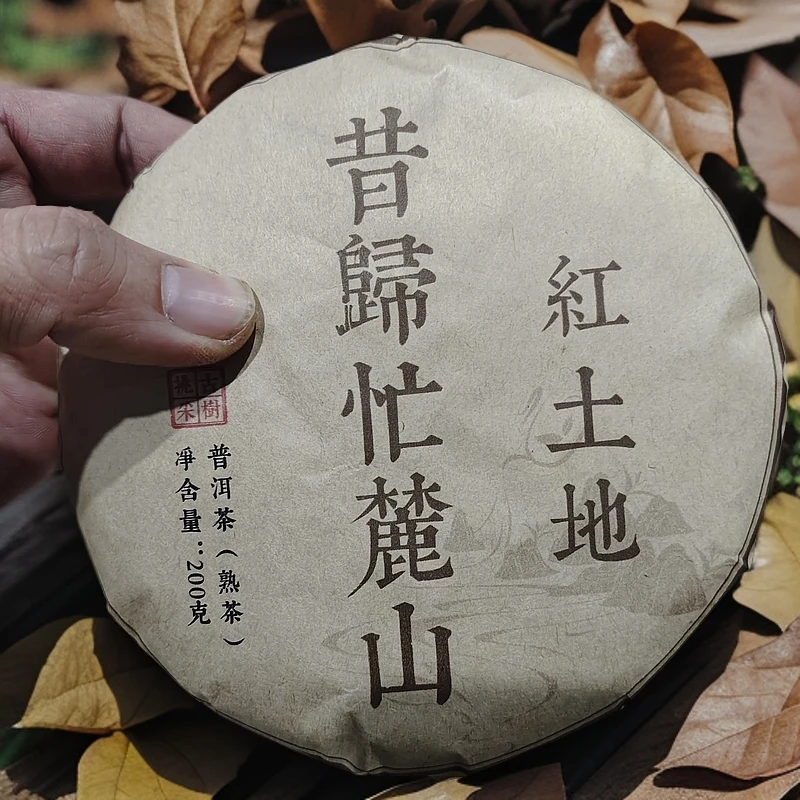 紅土地
昔歸忙麓山
古樹
挑采
普洱茶（熟茶）
淨含量：200克